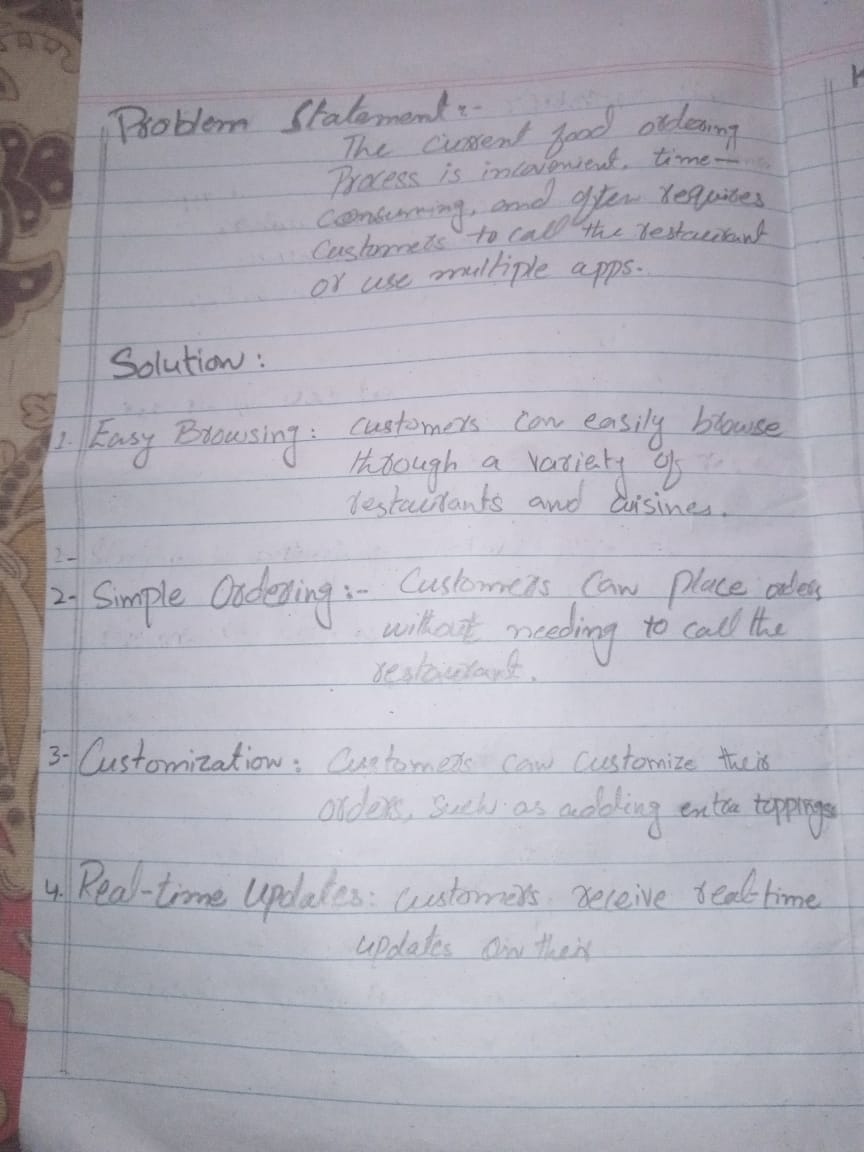 Problem Statement:-
The current food ordering
Process is inconvenient, time-
consuming, and often requires
Customers to call the restaurant
or use multiple apps.
Solution:
1. Easy Browsing: customers can easily browse
through a variety of
restaurants and cuisines.
2-
2- Simple Ordering:- Customers can place orders
without needing to call the
restaurant.
3- Customization: Customers can customize their
orders, such as adding extra toppings
4. Real-time Updates: customers receive real-time
updates on their